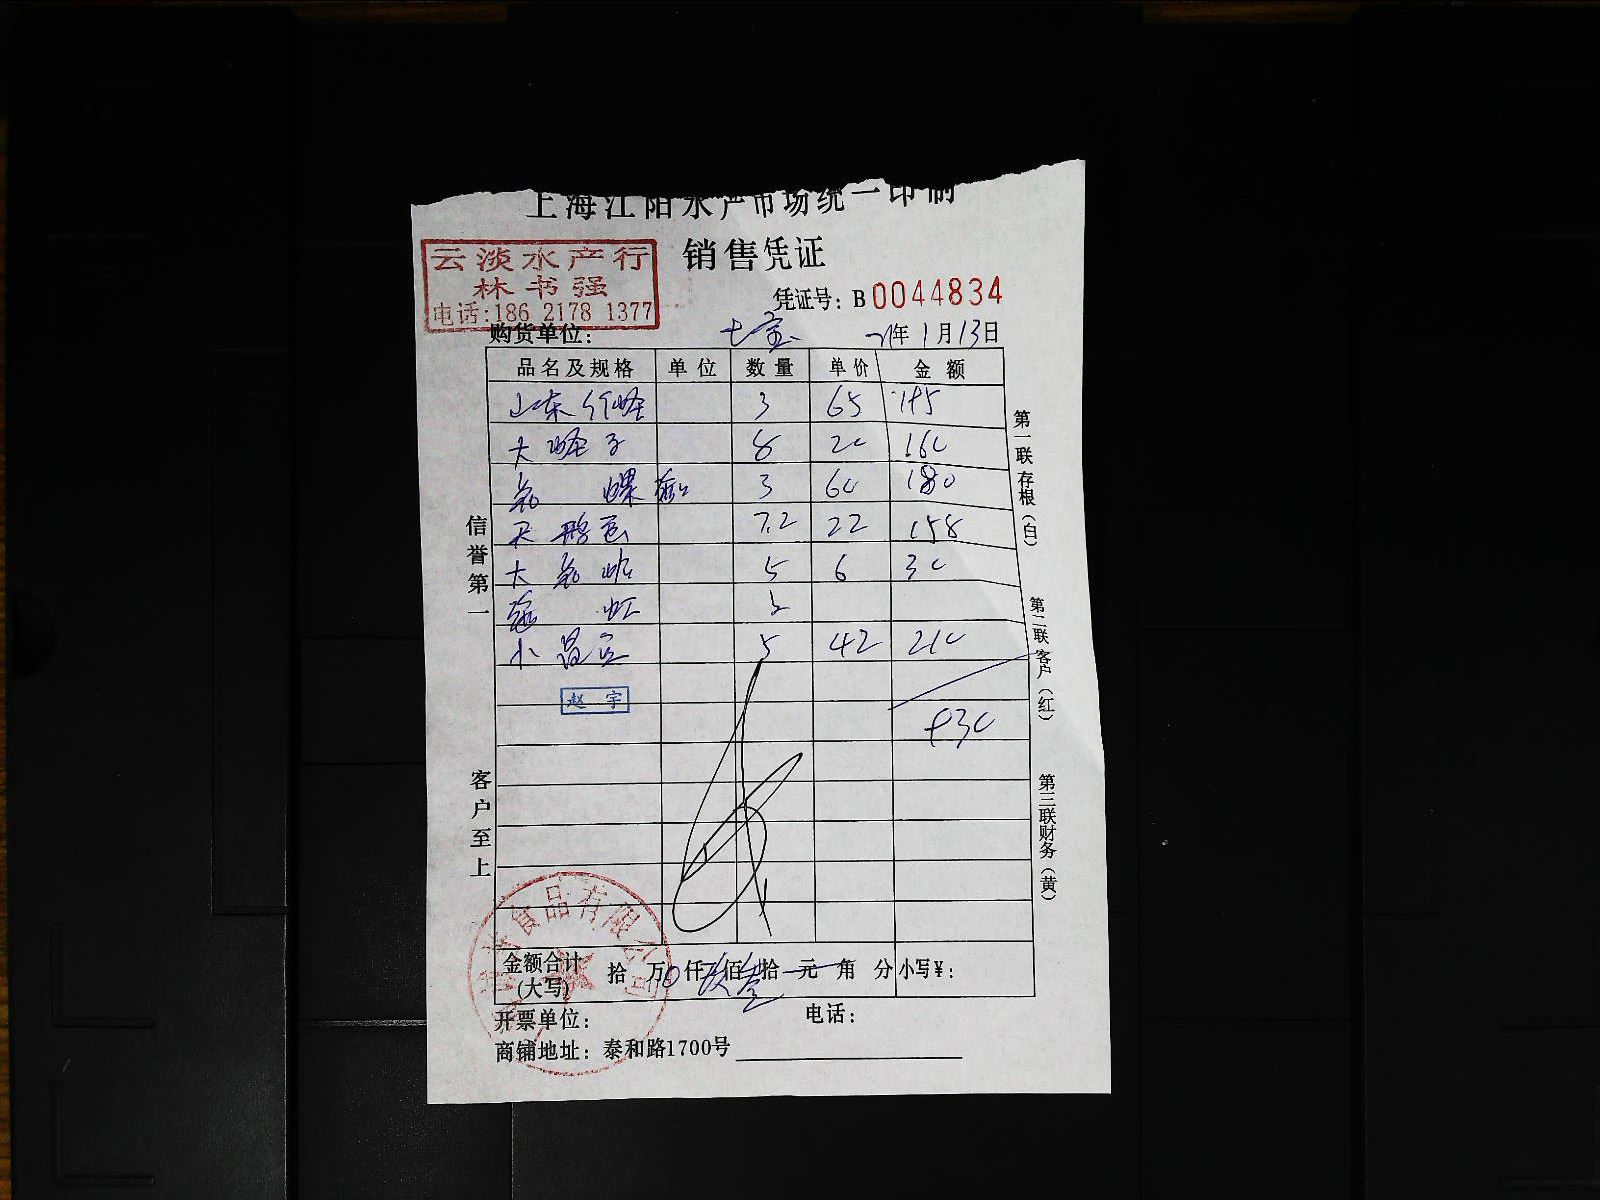 上海江阳水产市场统一印制
销售凭证
云淡水产行
林书强
电话:186 2178 1377
凭证号: B0044834
购货单位: 七宝 21年1月13日
品名及规格 单位 数量 单价 金额
山东竹蛏 3 65 195
大蛏子 8 20 160
花螺 3 60 180
7.2 22 158
大花蛤 5 6 30
虾 3
小 5 42 210
赵宇
930
信誉第一
客户至上
第一联存根(白)
第二联客户(红)
第三联财务(黄)
食品有限公司
金额合计(大写) 拾万0仟玖佰叁拾元角分 小写¥:
开票单位: 电话:
商铺地址: 泰和路1700号